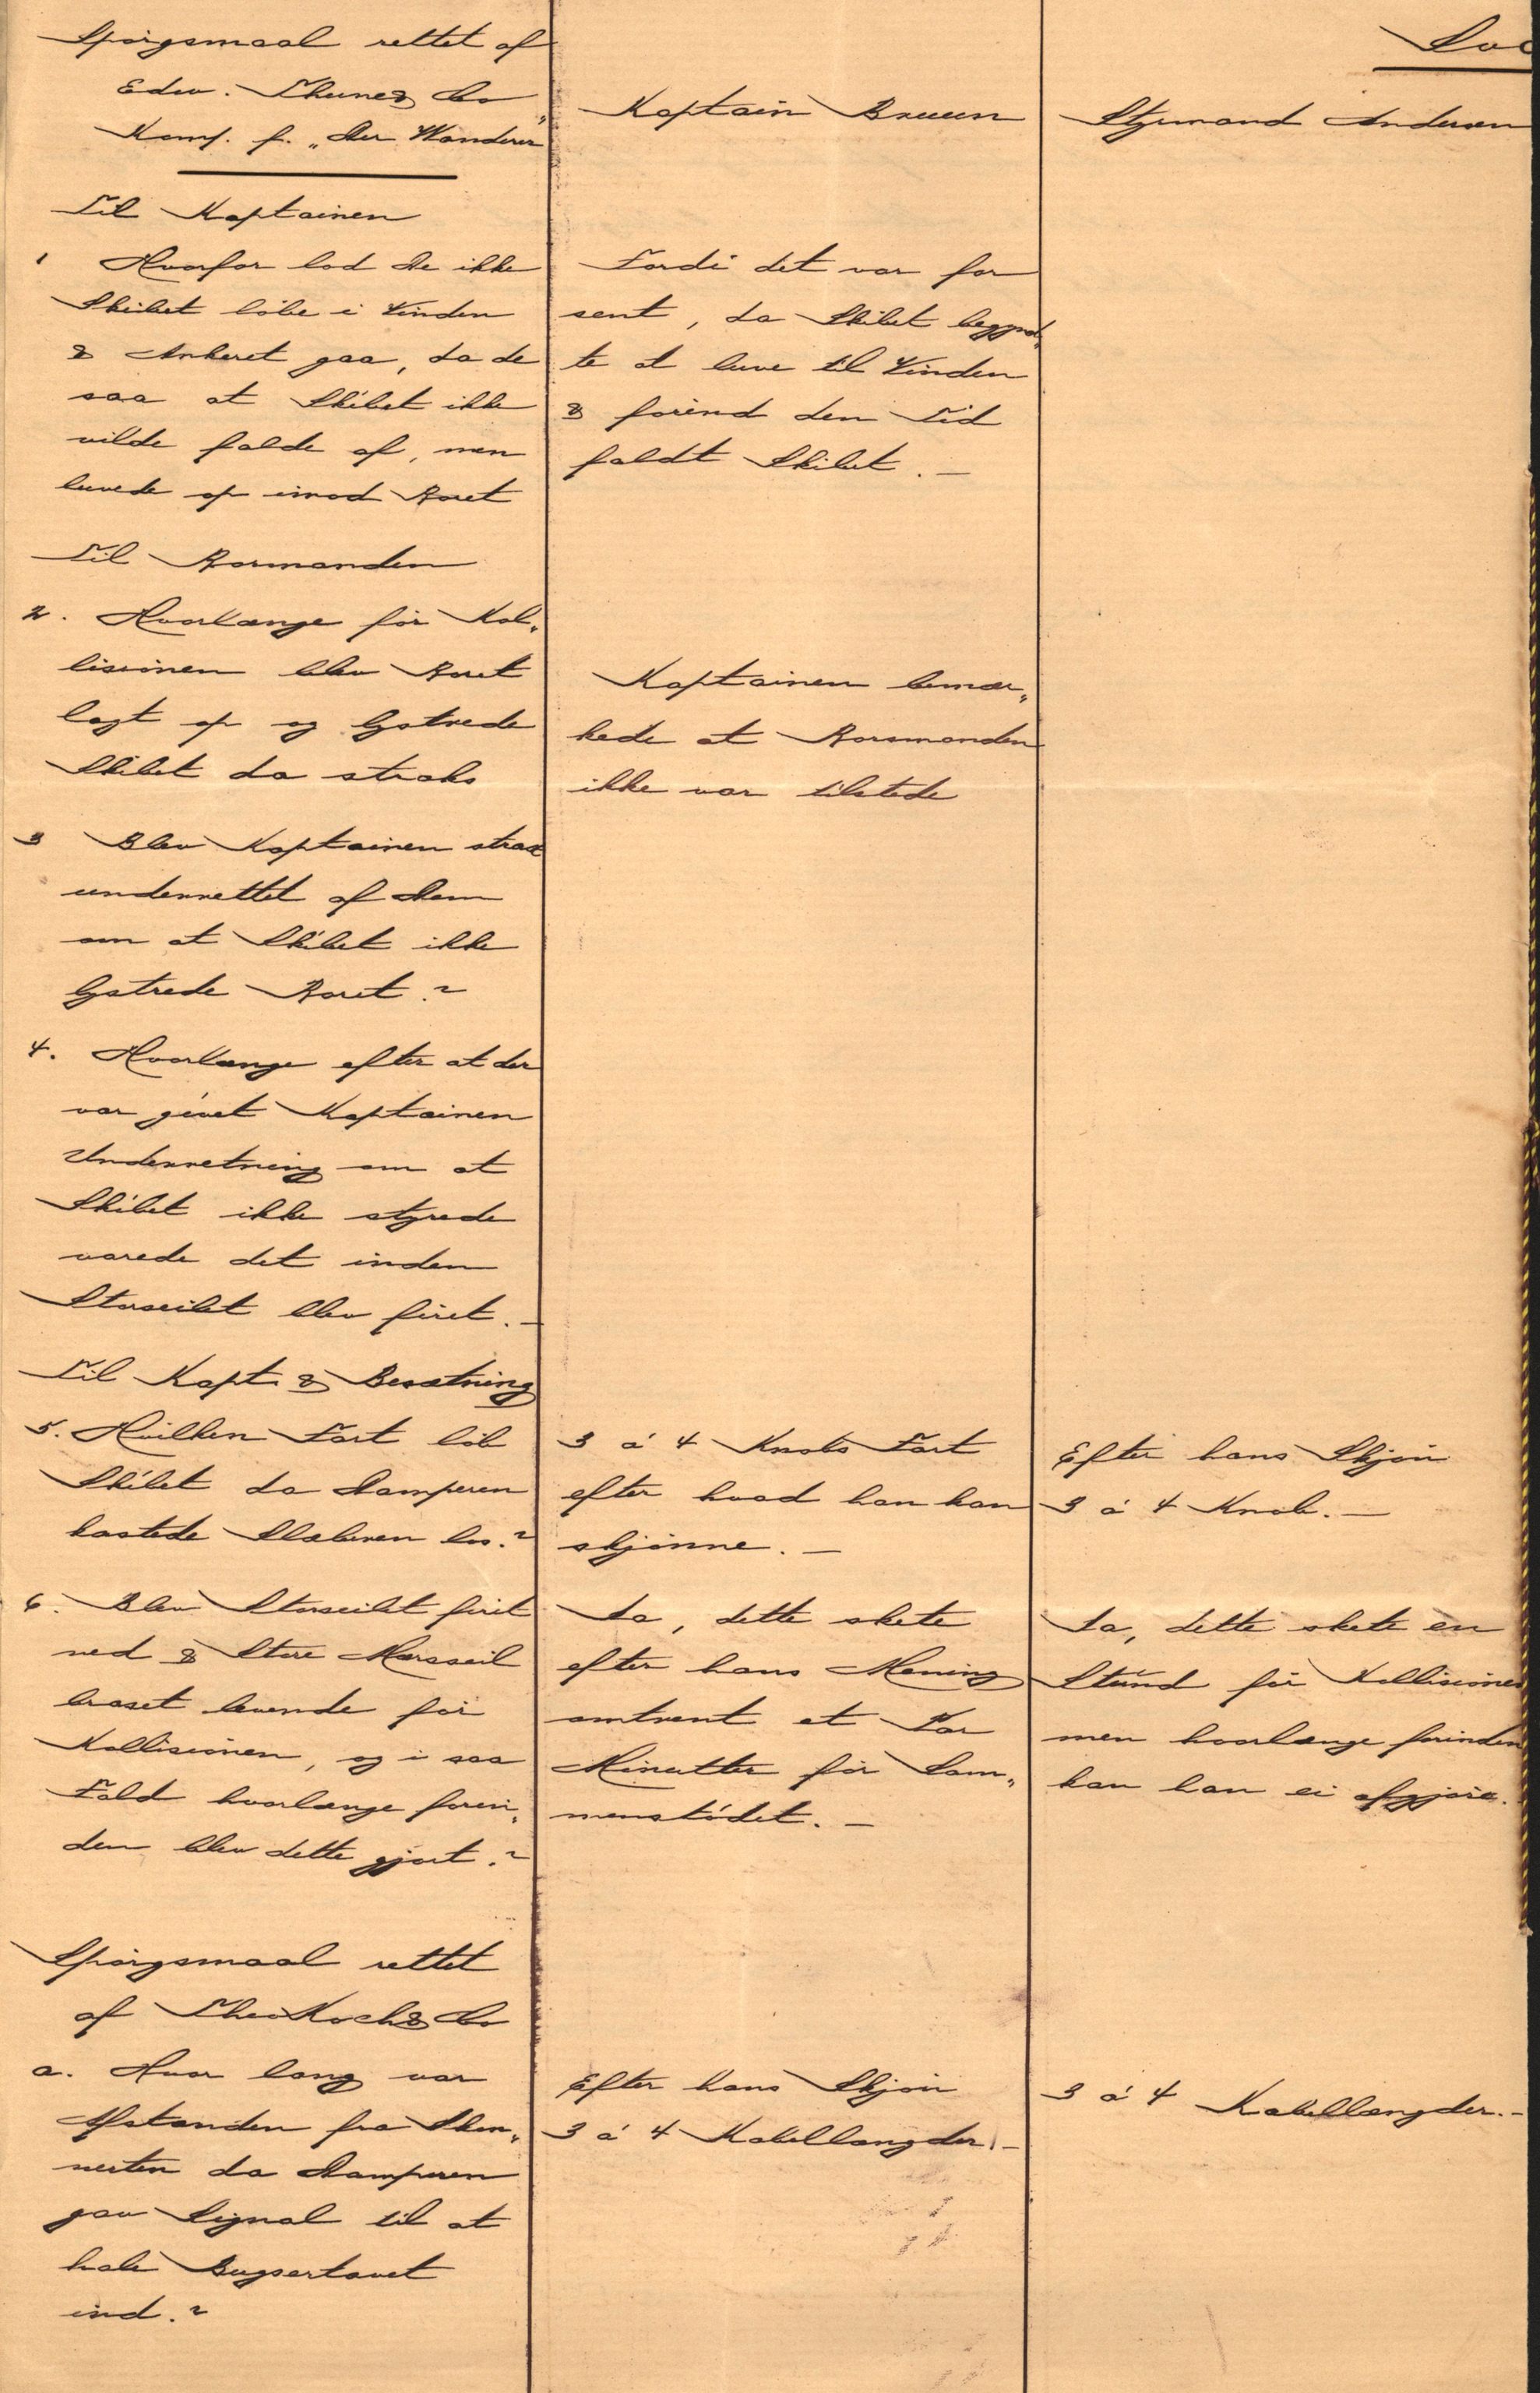 Spörgsmaal rettet af
Edw. Thune & Co
Komf. f. „Der Wanderer"
Til Kaptainen
1 Hvorfor lod De ikke
Skibet löbe i Vinden
& Ankeret gaa, da de
saa at Skibet ikke
vilde falde af, men
luvede op imod Roret
Til Rormanden
2. Hvorlænge för Kol„
lisionen blev Roret
lagt op og lystrede
Skibet da straks
3 Blev Kaptainen strax
underrettet af Dem
om at Skibet ikke
lystrede Roret?
4. Hvorlænge efter at der
var givet Kaptainen
Underretning om at
Skibet ikke styrede
varede det inden
Storseilet blev firet. —
Til Kapt. & Besætning
5. Hvilken Fart löb
Skibet da Damperen
kastede Slæberen los.?
6. Blev Storseilet firet
ned & Store Mersseil
braset levende för
Kollisionen, og i saa
Fald hvorlænge forin„
den blev dette gjort.?
Spörgsmaal rettet
af Theo Koch & Co
a. Hvor lang var
Afstanden fra Sken„
nerten da Damperen
gav Signal til at
hale Bugsertouet
ind.?
Kaptain Bruun
Fordi det var for
sent, da Skibet begynd„
te at luve til Vinden
& forind den Tid
faldt Skibet. —
Kaptainen bemær„
kede at Rormanden
ikke var tilstede
3 á 4 Knobs Fart
efter hvad han kan
skjönne. —
Ja, dette skete
efter hans Mening
omtrent et Par
Minutter för Sam„
menstödet. —
Efter hans Skjön
3 á 4 Kabellængder. —
Styrmand Andersen
Efter hans Skjön
3 á 4 Knob. —
Ja, dette skete en
Stund för Kollisionen
men hvorlænge forinden
kan han ei afgjöre.
3 á 4 Kabellængder. —